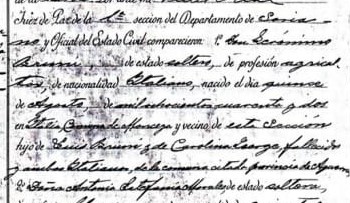 Juez de Paz de la 1ª seccion del Departamento de Soria-
no y Oficial del Estado Civil comparecieron: 1º Don Gerónimo
Bruni de estado soltero, de profesión agricul-
tor, de nacionalidad Italiano, nacido el día quince
de Agosto, de mil ochocientos cuarenta y dos
en Italia Comuna de y vecino de esta Sección
hijo de Luis Bruni y de Carolina fallecidos
y ambos Italianos, de la comuna citada provincia de
2º Doña Antonia Estefania Morales de estado soltera,